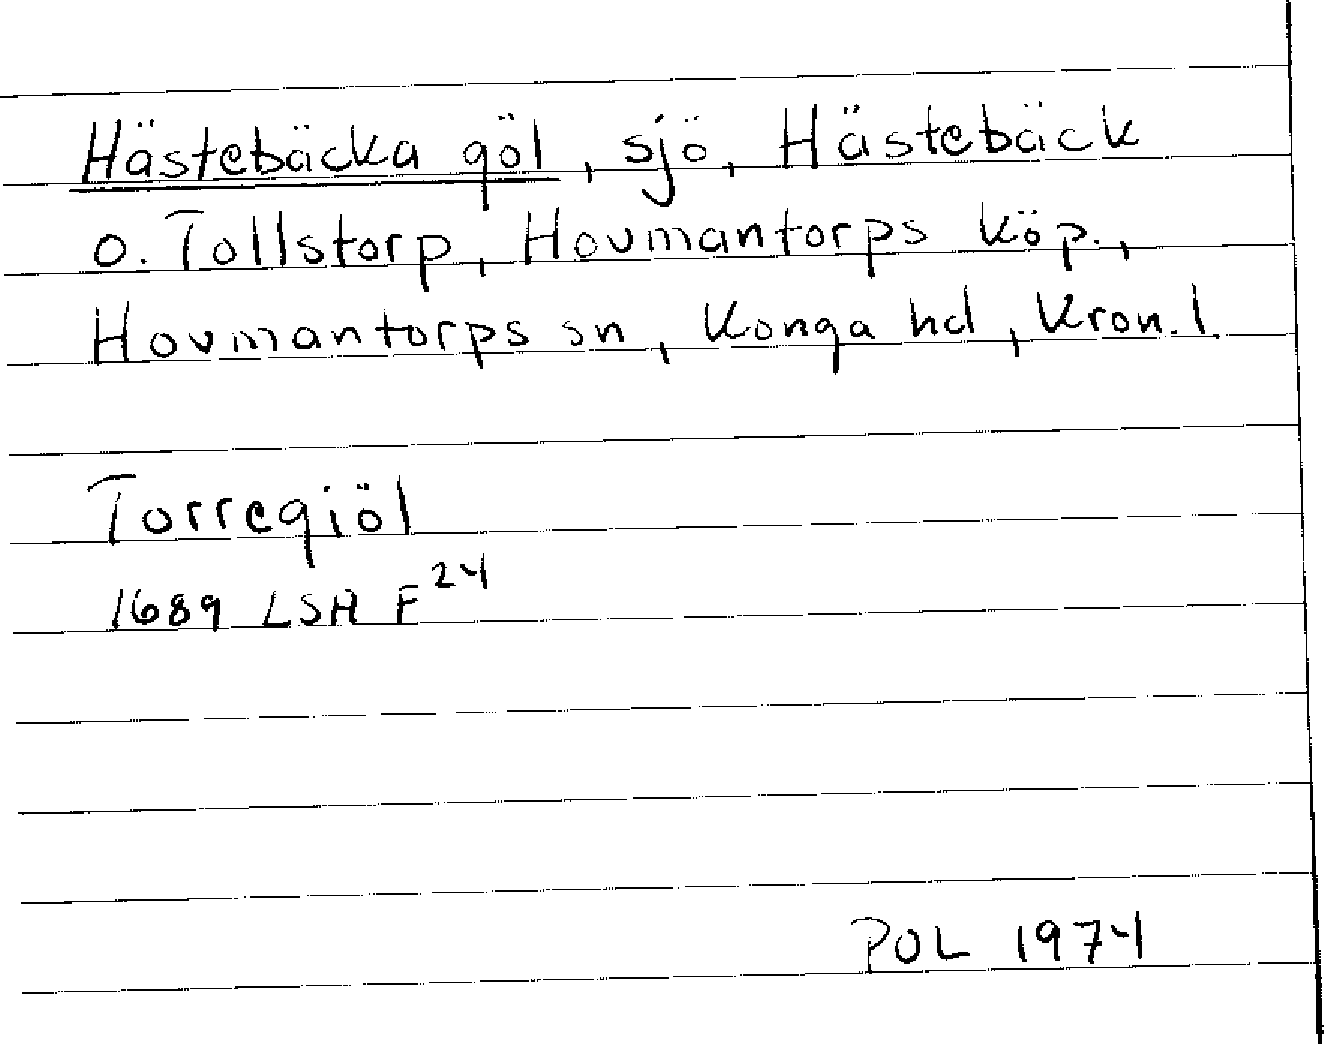 Hästebäcka göl, sjö, Hästebäck
o. Tollstorp, Hovmantorps köp.,
Hovmantorps sn, Konga hd, Kron. l.
Torregiöl
1689 LSA F 24
POL 1974